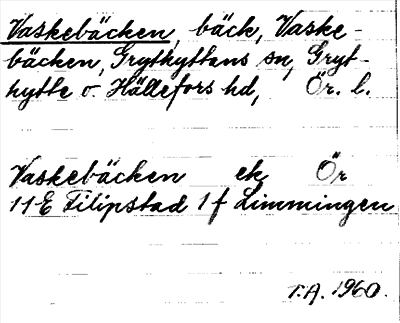 Vaskebäcken, bäck, Vaske-
bäcken, Grythyttans sn, Gryt-
hytte o. Hällefors hd, Ör. l.
Vaskebäcken ek Ör
11E Filipstad 1 f Limmingen
T.A. 1960.